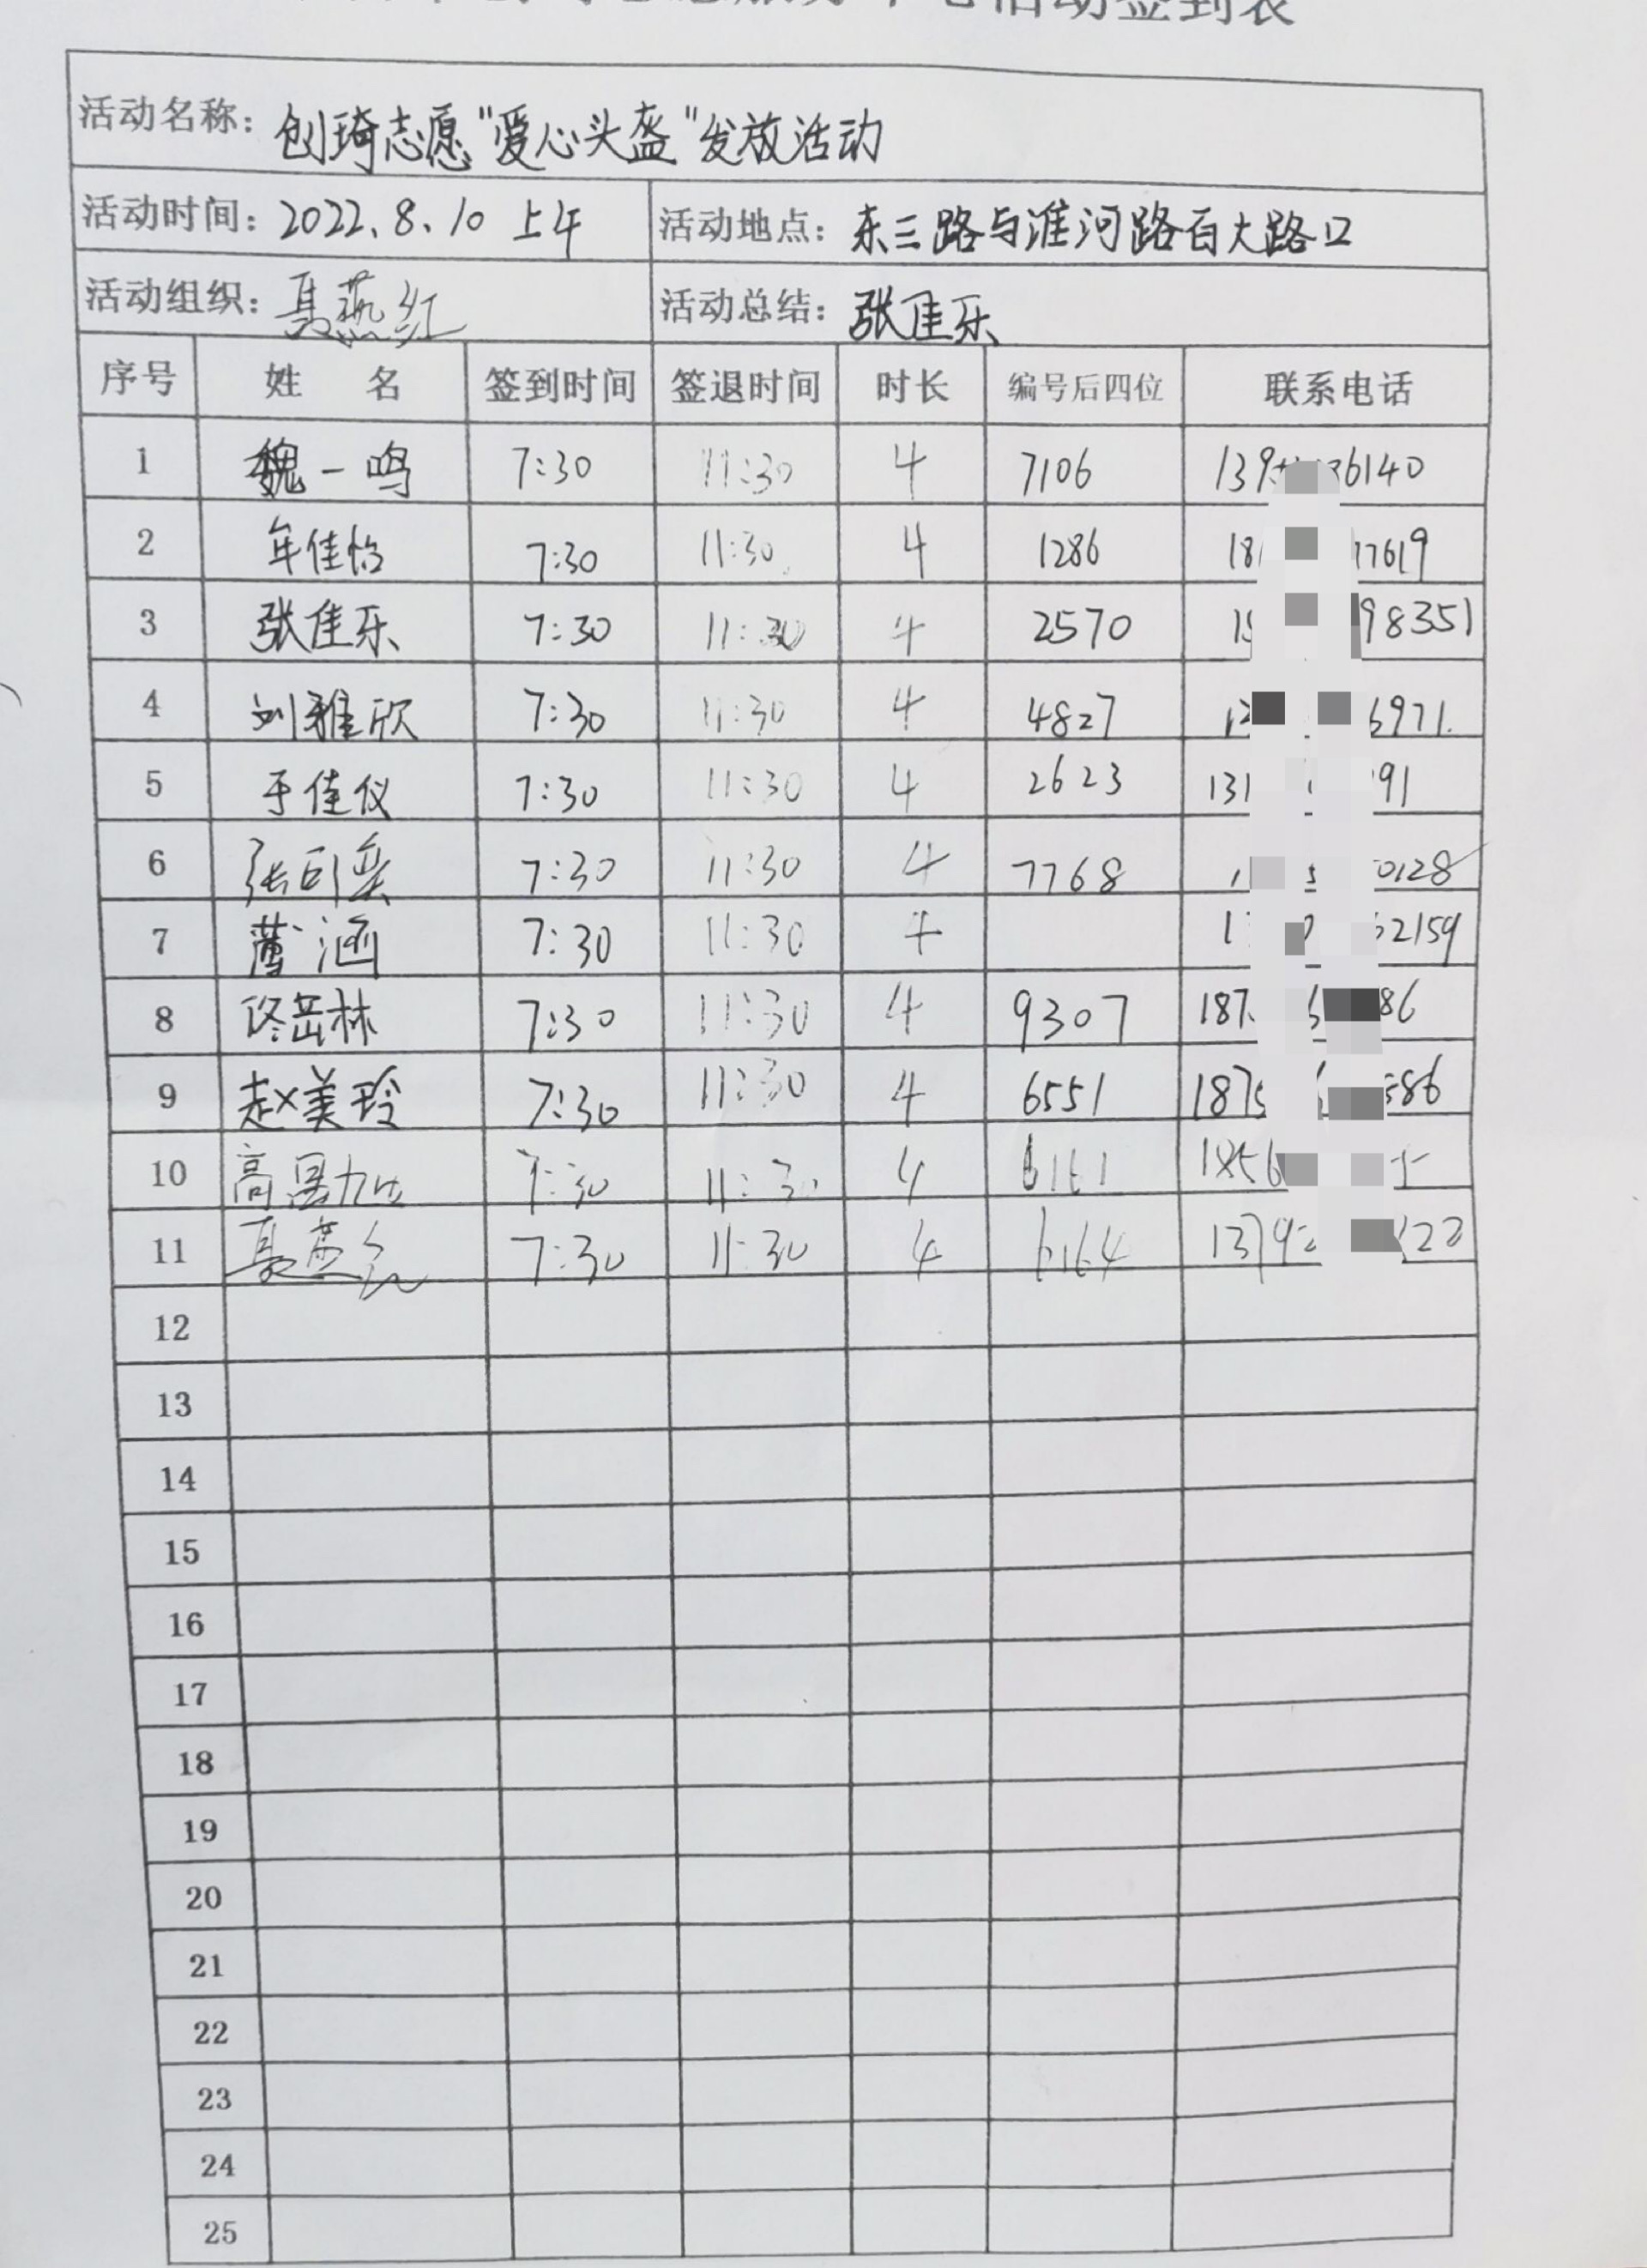 活动签到表
活动名称：创琦志愿"爱心头盔"发放活动
活动时间：2022.8.10 上午 活动地点：东三路与淮河路百大路口
活动组织：聂燕红 活动总结：张佳乐
序号 姓 名 签到时间 签退时间 时长 编号后四位 联系电话
1 魏一鸣 7:30 11:30 4 7106 139 6140
2 年佳怡 7:30 11:30 4 1286 181 17619
3 张佳乐 7:30 11:30 4 2570 15 98351
4 刘雅欣 7:30 11:30 4 4827 6971.
5 于佳仪 7:30 11:30 4 2623 131 91
6 张 7:30 11:30 4 7768 0128
7 涵 7:30 11:30 4 1 2159
8 佟岳林 7:30 11:30 4 9307 187 86
9 赵美玲 7:30 11:30 4 6551 1875 586
10 高 7:30 11:30 4 6161 1856
11 聂燕红 7:30 11:30 4 6164 1379 22
12
13
14
15
16
17
18
19
20
21
22
23
24
25